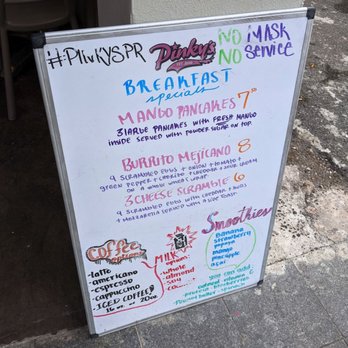 #PlinkySPR Pinky's NO MASK
NO Service
BREAKFAST
specials
MANGO PANCAKES 7
3 LARGE PANCAKES with FRESH MANGO
inside served with powder sugar on top
BURRITO MEJICANO 8
2 SCRAMBLED EGGS + ONION + TOMATO +
GREEN PEPPER + CHORIZO + CHEDDAR + SOUR CREAM
ON A WHOLE WHEAT WRAP
3 CHEESE SCRAMBLE 6
+ MOZZARELLA SERVED with A SIDE TOAST
Smoothies
BANANA
Strawberry
papaya
mango
pineapple
acai
Coffee
options
-latte
-americano
-espresso
-cappuccino
-ICED COFFEE
16 oz. or 20oz.
MILK
options
-whole
-almond
-soy
you can add
oatmeal
protein blueberries